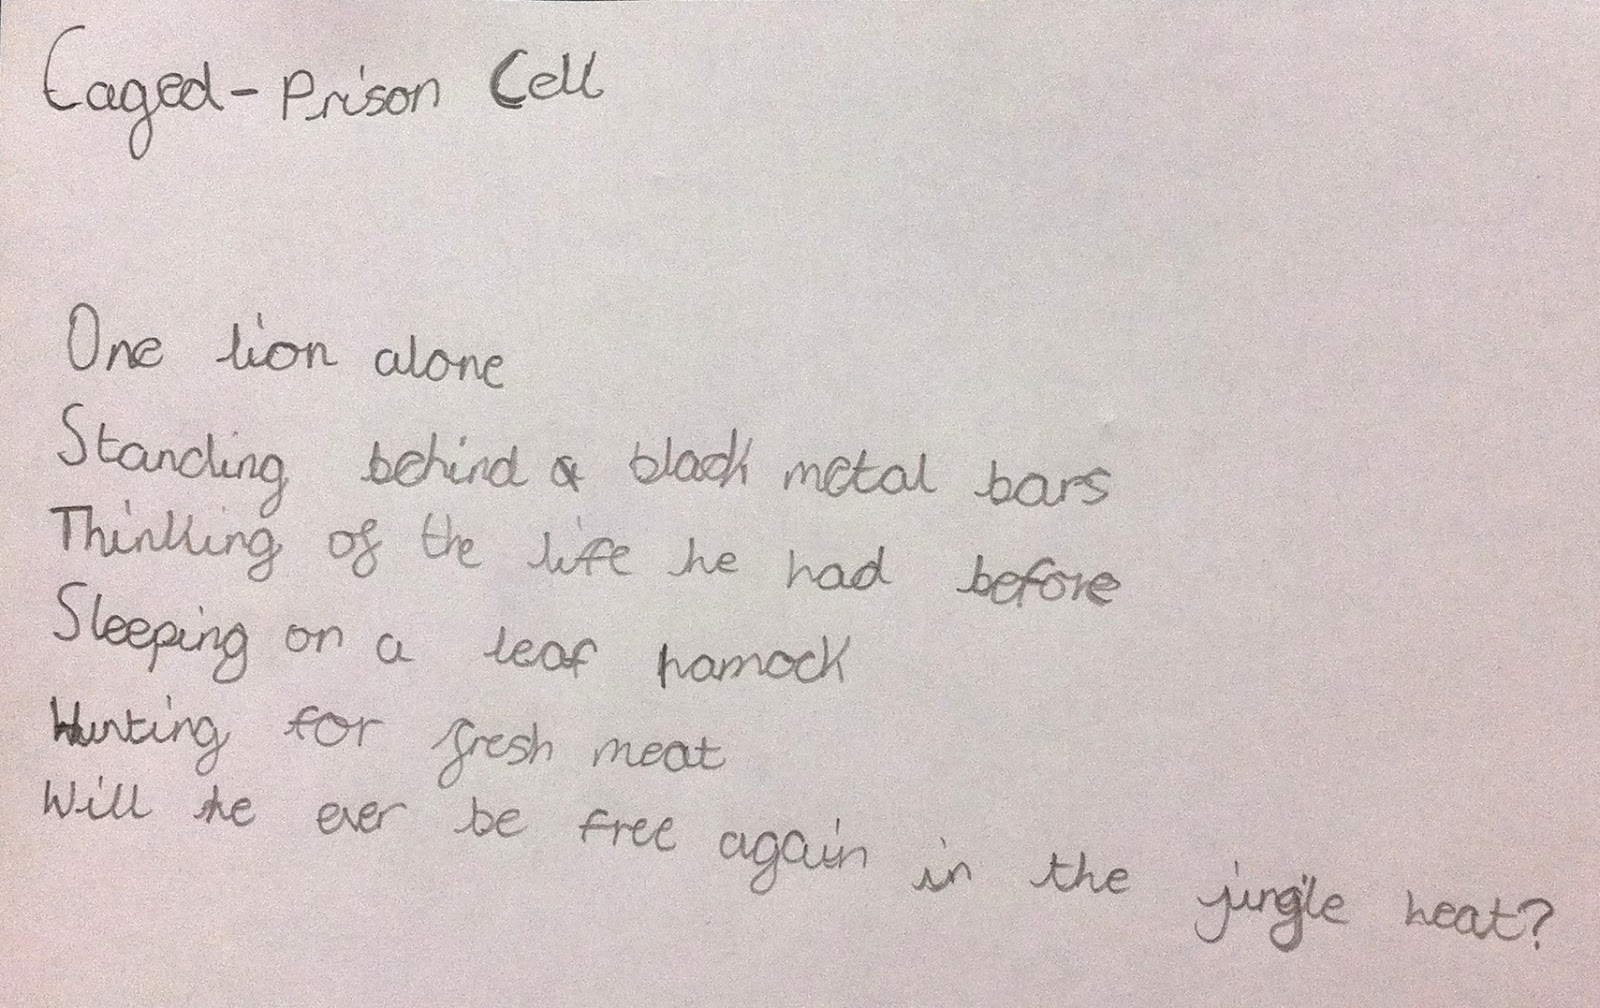 Caged-Prison Cell
One lion alone
Standing behind a black metal bars
Thinking of the life he had before
Sleeping on a leaf hamock
Hunting for fresh meat
Will he ever be free again in the jungle heat?